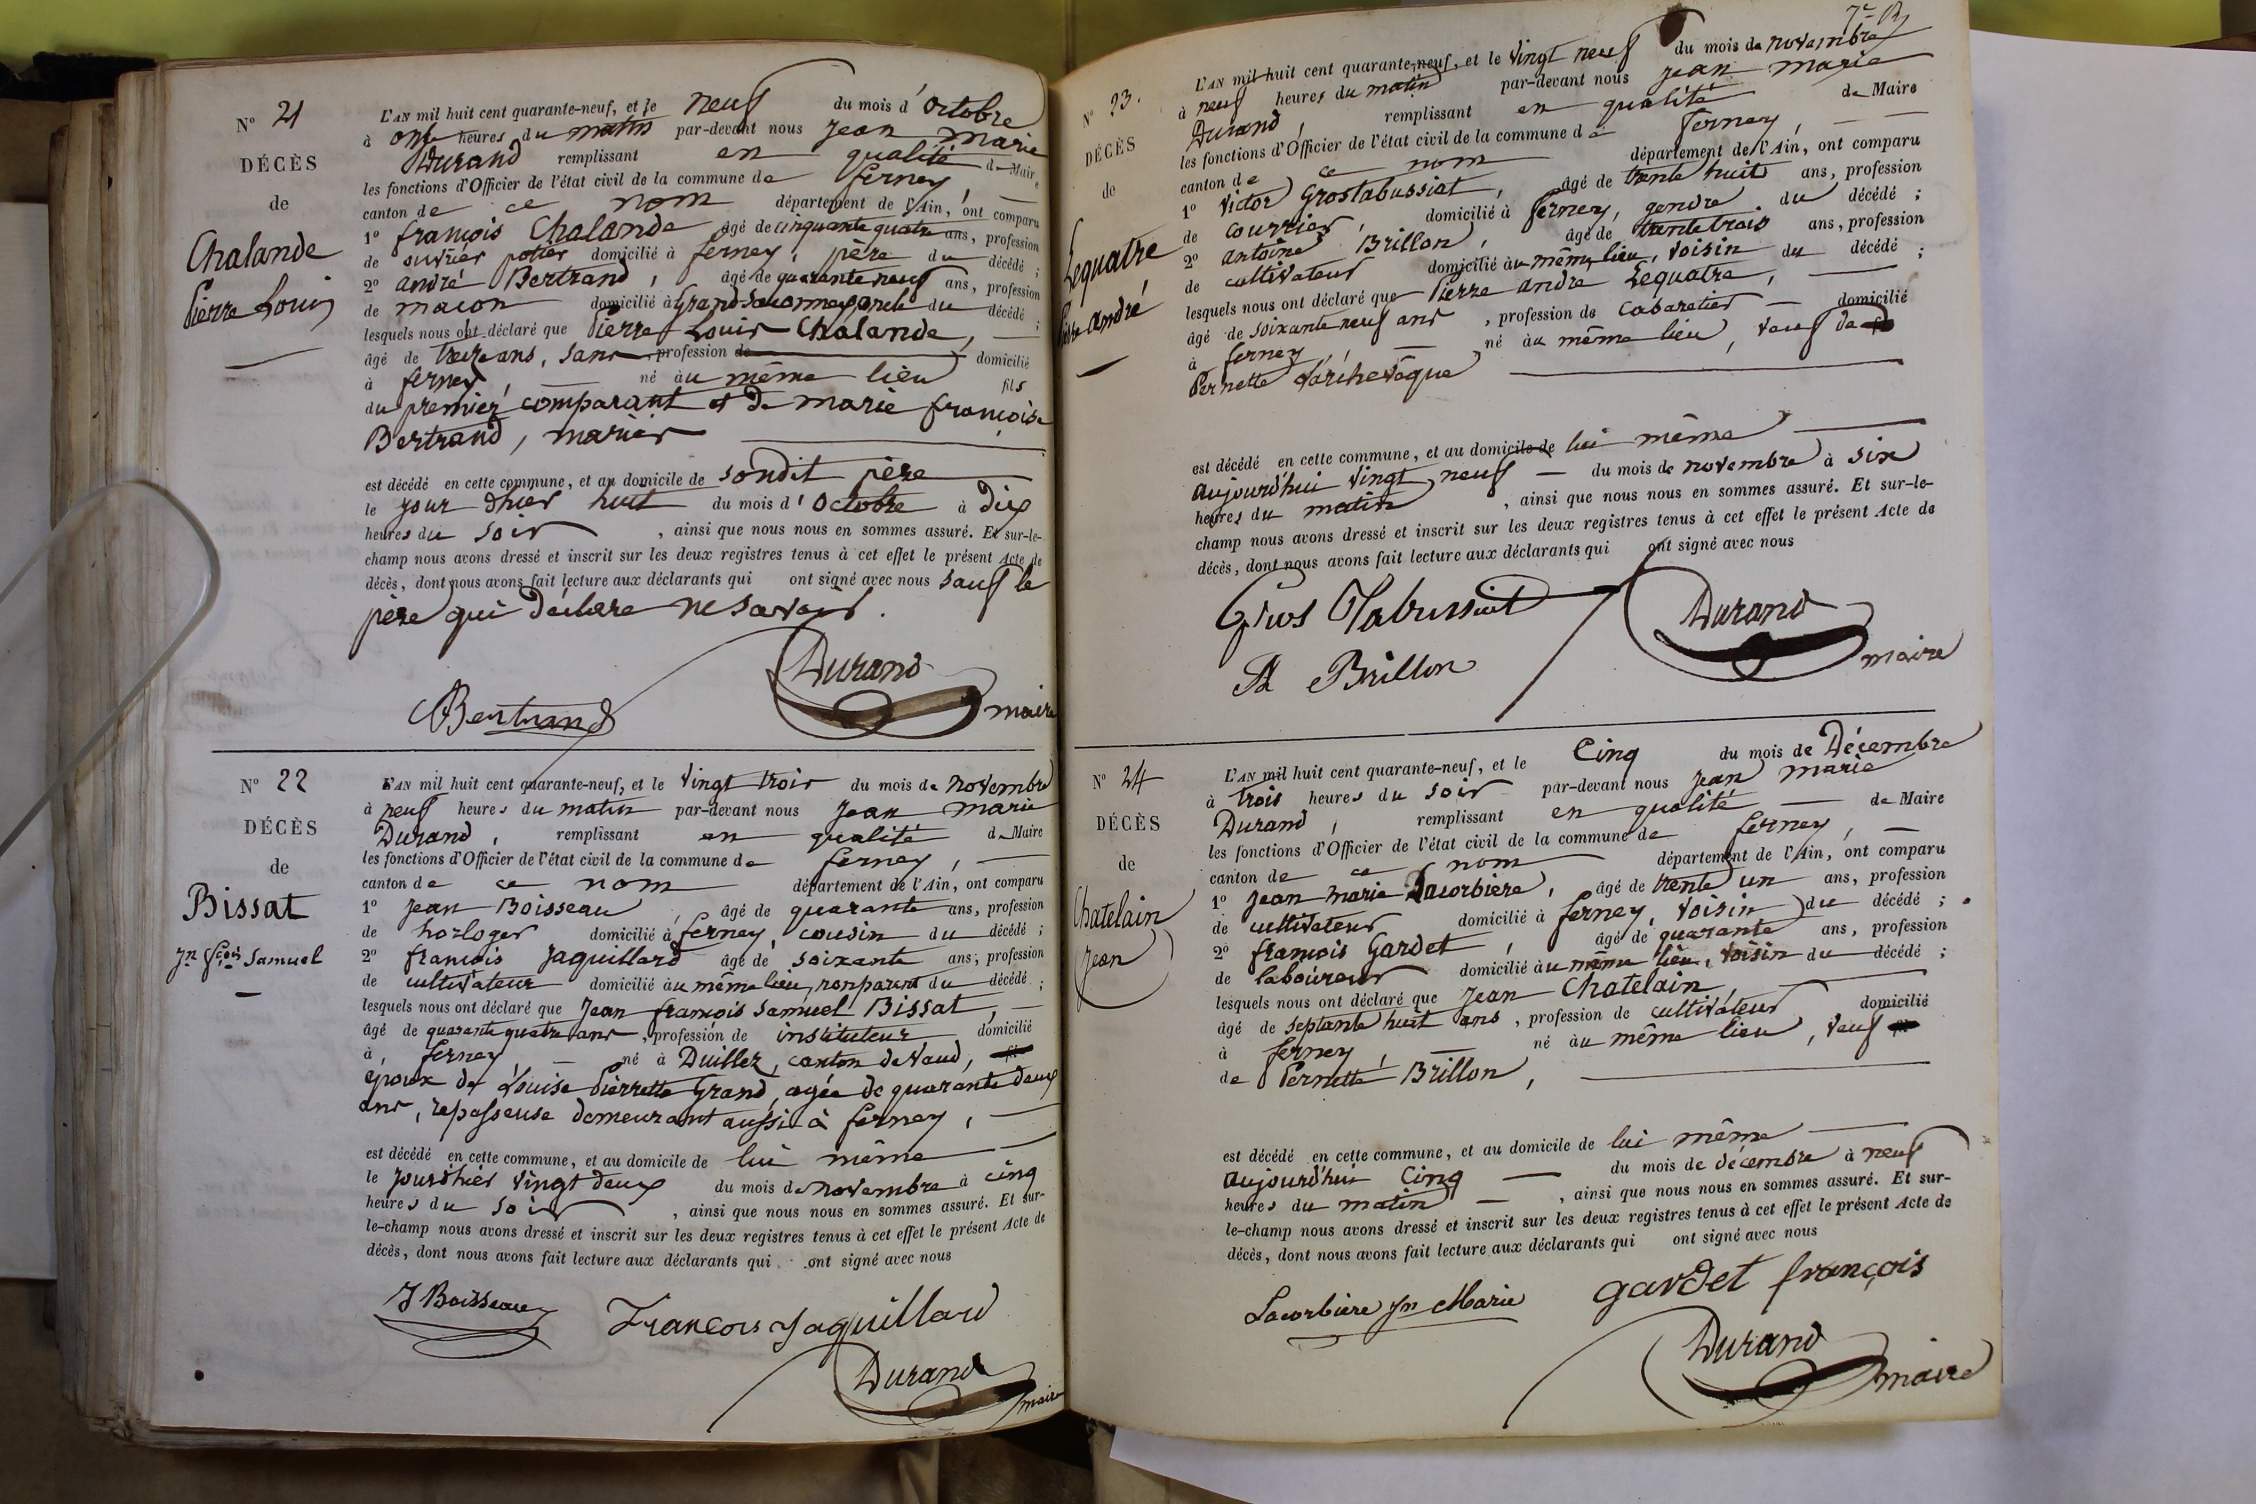 N° 21
DÉCÈS
de
Chalande
Pierre Louis
L'AN mil huit cent quarante-neuf, et le neuf du mois d'Octobre
à onze heures du matin par-devant nous jean marie
Durand remplissant en qualité de Maire
les fonctions d'Officier de l'état civil de la commune de ferney,
canton de ce nom département de l'Ain, ont comparu
1° françois Chalande âgé de cinquante quatre ans, profession
de ouvrier potier domicilié à ferney, père du décédé ;
2° andré Bertrand, âgé de quarante neuf ans, profession
de macon domicilié à Grand Saconnex, oncle du décédé ;
lesquels nous ont déclaré que Pierre Louis Chalande,
âgé de treize ans, sans profession de domicilié
à ferney, né au même lieu fils
du premier comparant et de marie françoise
Bertrand, mariés
est décédé en cette commune, et au domicile de sondit père
le jour d'hier huit du mois d'Octobre à dix
heures du soir, ainsi que nous nous en sommes assuré. Et sur-le-
champ nous avons dressé et inscrit sur les deux registres tenus à cet effet le présent Acte de
décès, dont nous avons fait lecture aux déclarants qui ont signé avec nous sauf le
père qui déclare ne savoir.
Durand
Bertrand
maire
N° 22
DÉCÈS
de
Bissat
Jn fçois Samuel
L'AN mil huit cent quarante-neuf, et le vingt trois du mois de novembre
à neuf heures du matin par-devant nous jean marie
Durand, remplissant en qualité de Maire
les fonctions d'Officier de l'état civil de la commune de ferney,
canton de ce nom département de l'Ain, ont comparu
1° jean Boisseau, âgé de quarante ans, profession
de horloger domicilié à ferney, cousin du décédé ;
2° françois Jaquillard âgé de soixante ans, profession
de cultivateur domicilié au même lieu, non parent du décédé ;
lesquels nous ont déclaré que jean françois Samuel Bissat,
âgé de quarante quatre ans, profession de instituteur domicilié
à ferney, né à Duillez, canton de Vaud,
époux de Louise Pierrette Grand, agée de quarante deux
ans, repasseuse demeurant aussi à ferney,
est décédé en cette commune, et au domicile de lui même
le jour d'hier vingt deux du mois de novembre à cinq
heures du soir, ainsi que nous nous en sommes assuré. Et sur-
le-champ nous avons dressé et inscrit sur les deux registres tenus à cet effet le présent Acte de
décès, dont nous avons fait lecture aux déclarants qui ont signé avec nous
J Boisseau
François Jaquillard
Durand
maire
N° 23.
DÉCÈS
de
Lequatre
Pierre André
L'AN mil huit cent quarante-neuf, et le vingt neuf du mois de novembre
à neuf heures du matin par-devant nous jean marie
Durand, remplissant en qualité de Maire
les fonctions d'Officier de l'état civil de la commune de ferney,
canton de ce nom département de l'Ain, ont comparu
1° victor Grostabussiat, âgé de trente huit ans, profession
de courrier, domicilié à ferney, gendre du décédé ;
2° antoine Brillon, âgé de trente trois ans, profession
de cultivateur domicilié au même lieu, voisin du décédé ;
lesquels nous ont déclaré que Pierre andré Lequatre,
âgé de soixante neuf ans, profession de cabaretier domicilié
à ferney, né au même lieu, veuf de
Pernette Larchevêque
est décédé en cette commune, et au domicile de lui même
aujourd'hui vingt neuf du mois de novembre à six
heures du matin, ainsi que nous nous en sommes assuré. Et sur-le-
champ nous avons dressé et inscrit sur les deux registres tenus à cet effet le présent Acte de
décès, dont nous avons fait lecture aux déclarants qui ont signé avec nous
Gros Tabussiat
Durand
A Brillon
maire
N° 24
DÉCÈS
de
Chatelain
Jean
L'AN mil huit cent quarante-neuf, et le Cinq du mois de Décembre
à trois heures du soir par-devant nous jean marie
Durand, remplissant en qualité de Maire
les fonctions d'Officier de l'état civil de la commune de ferney,
canton de ce nom département de l'Ain, ont comparu
1° jean marie Lacorbière, âgé de trente un ans, profession
de cultivateur domicilié à ferney, voisin du décédé ;
2° françois Gardet, âgé de quarante ans, profession
de laboureur domicilié au même lieu, voisin du décédé ;
lesquels nous ont déclaré que jean Chatelain,
âgé de septante huit ans, profession de cultivateur domicilié
à ferney, né au même lieu, veuf
de Pernette Brillon,
est décédé en cette commune, et au domicile de lui même
aujourd'hui Cinq du mois de décembre à neuf
heures du matin, ainsi que nous nous en sommes assuré. Et sur-
le-champ nous avons dressé et inscrit sur les deux registres tenus à cet effet le présent Acte de
décès, dont nous avons fait lecture aux déclarants qui ont signé avec nous
Lacorbière jn Marie
gardet françois
Durand
maire